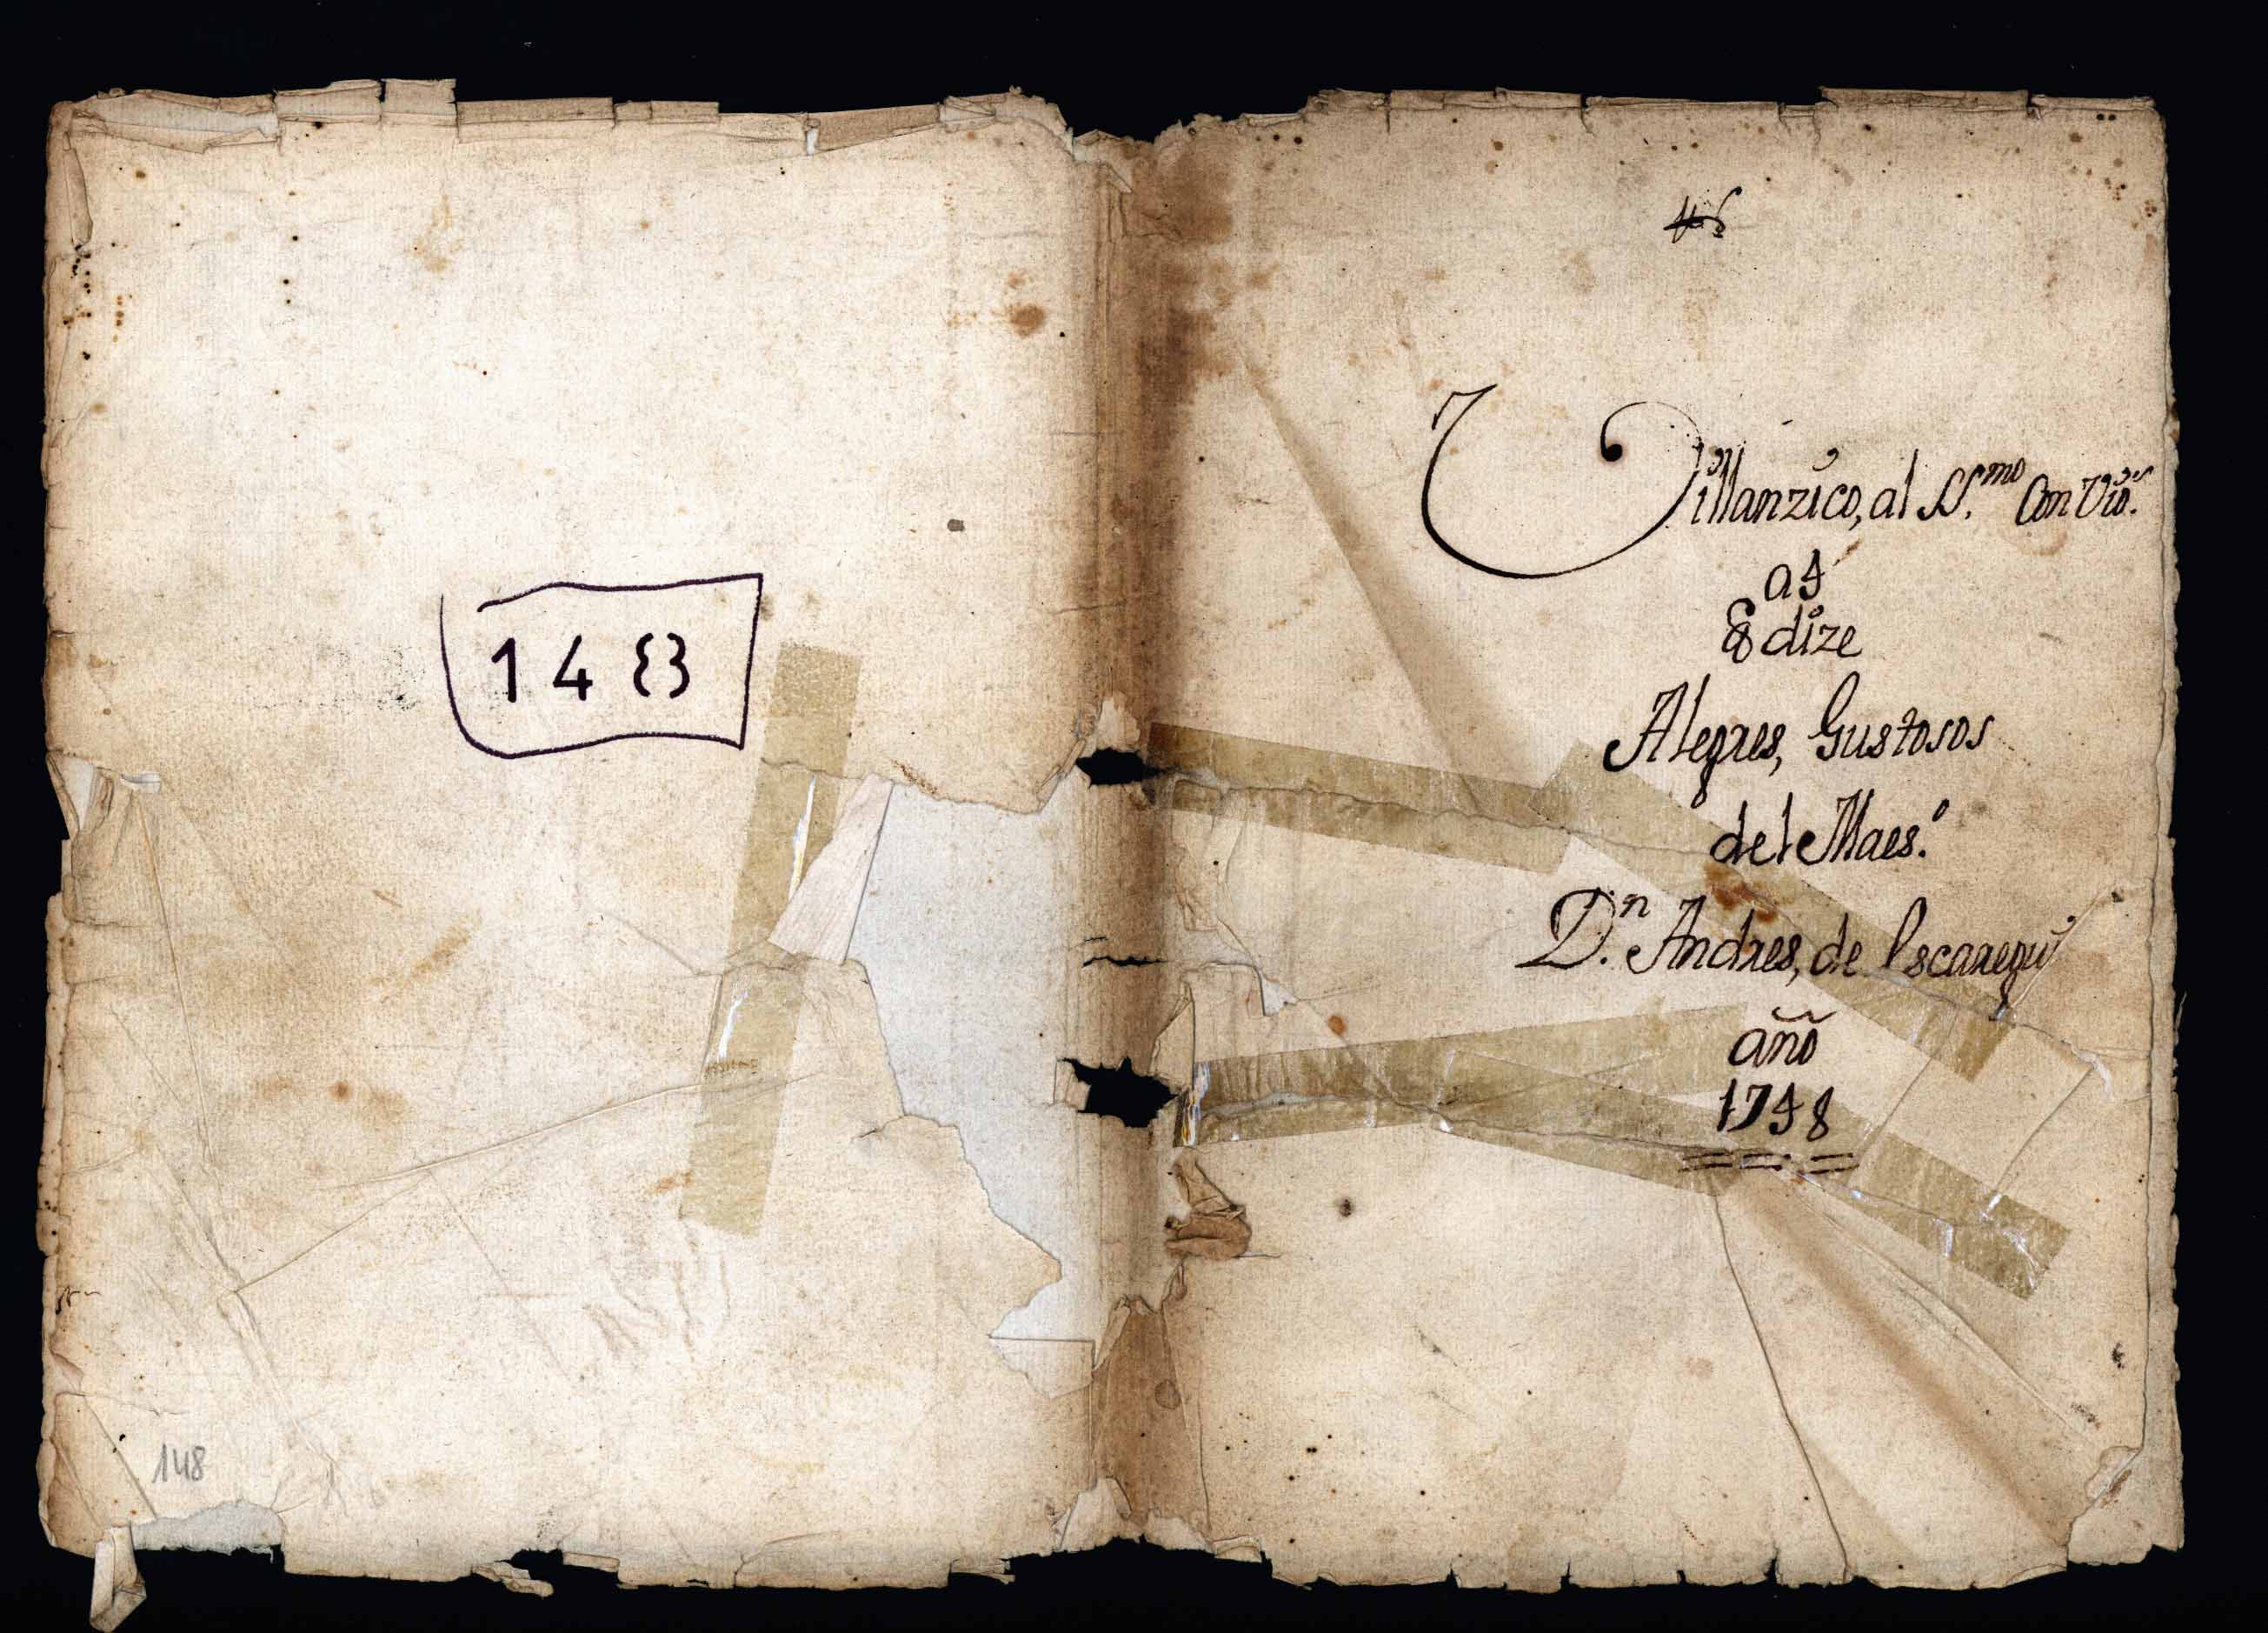 148
148
Villanzico, al SS.mo Con Vio.s
a 4
Q dize
Alegres, Gustosos
del Maes.o
D.n Andres, de Escaregui
año
1748